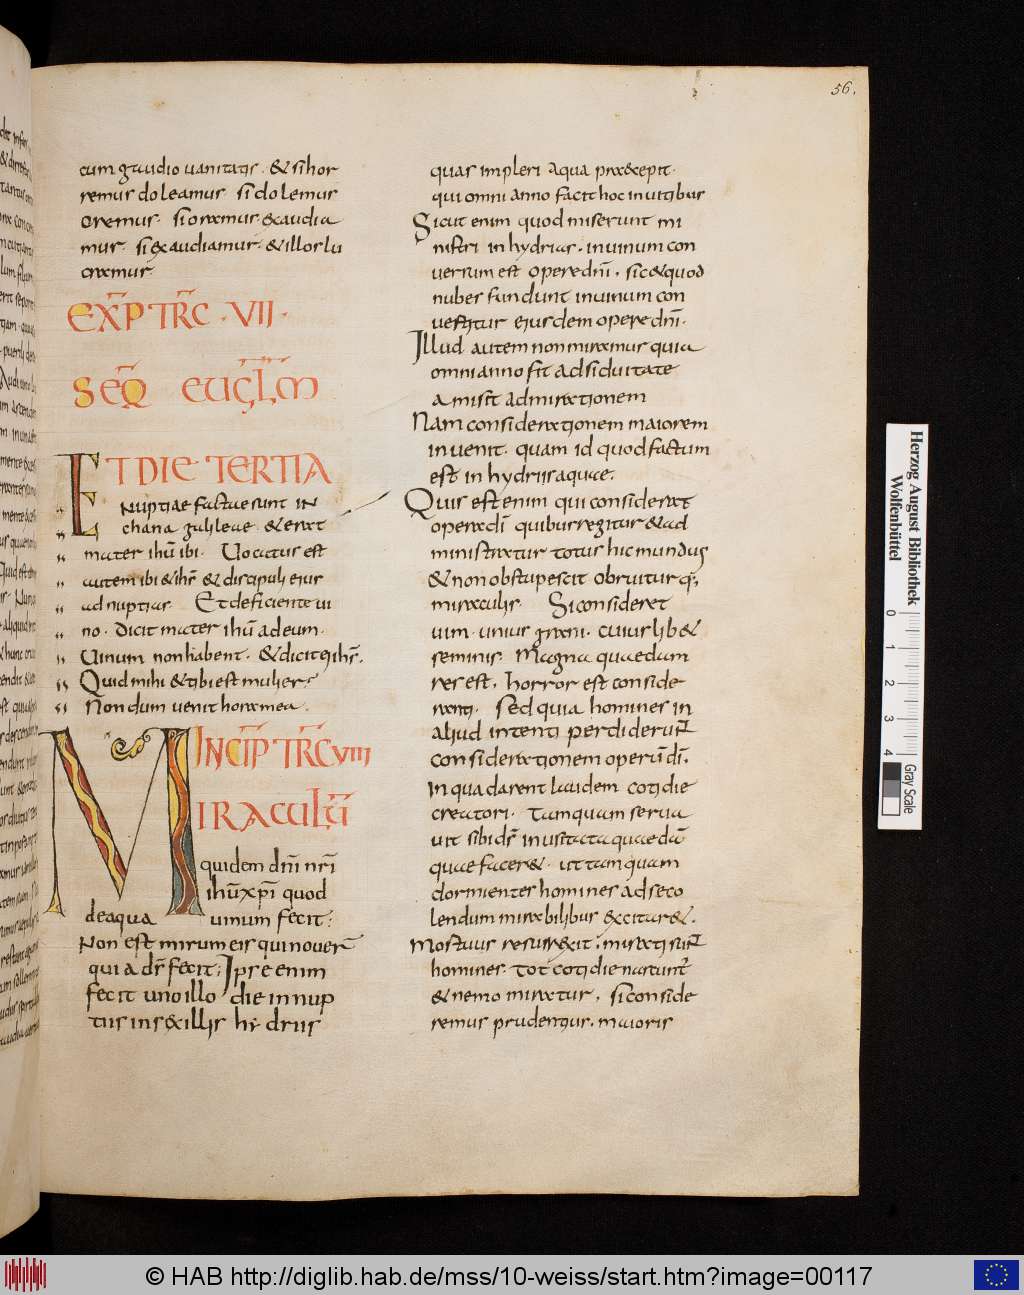 56.
cum gaudio uanitatis. & si hor
remus doleamus. si dolemus
oremus. si oremus &audia
mur. si exaudiamur. & illorlu
cremur
EXP TRC · VII ·
SEQ EUGLM
ET DIE TERTIA
Nuptiae factae sunt in
chana galileae. & erat
mater ihu ibi. Uocatus est
autem ibi & ihs & discipuli eius
ad nuptias. Et deficiente ui
no. dicit mater ihu ad eum.
Uinum non habent. & dicit ei ihs.
Quid mihi & tibi est mulier?
Nondum uenit hora mea.
INCIP TRC VIII
MIRACULU
quidem dni nri
ihu xpi quod
de aqua uinum fecit.
Non est mirum eis qui nouer
quia ds fecit; Ipse enim
fecit uno illo die in nup
tiis in sex illis hydriis
quas impleri aqua praecepit.
qui omni anno facit hoc in uitibus
Sicut enim quod miserunt mi
nistri in hydrias. in uinum con
uersum est opere dni. sic & quod
nubes fundunt in uinum con
uertitur eiusdem opere dni.
Illud autem non miramur quia
omni anno fit adsiduitate
amisit admirationem
Nam considerationem maiorem
inuenit. quam id quod factum
est in hydriis aquae.
Quis est enim qui considerat
opera di quibus regitur & ad
ministratur totus hic mundus
& non obstupescit obruiturq;
miraculis. Si consideret
uim unius grani. cuius lib&
seminis. Magna quaedam
res est. horror est conside
ranti. Sed quia homines in
aliud intenti perdiderunt
considerationem operum di.
In qua darent laudem cotidie
creatori. Tamquam serua
uit sibi ds inusitata quaedam
quae facer&. ut tamquam
dormientes homines ad seco
lendum mirabilibus excitar&.
Mortuus resurrexit. mirati sunt
homines. tot cotidie nascunt
& nemo miratur. si conside
remus prudentius. maioris
Herzog August Bibliothek
Wolfenbüttel
0 1 2 3 4
Gray Scale
© HAB http://diglib.hab.de/mss/10-weiss/start.htm?image=00117